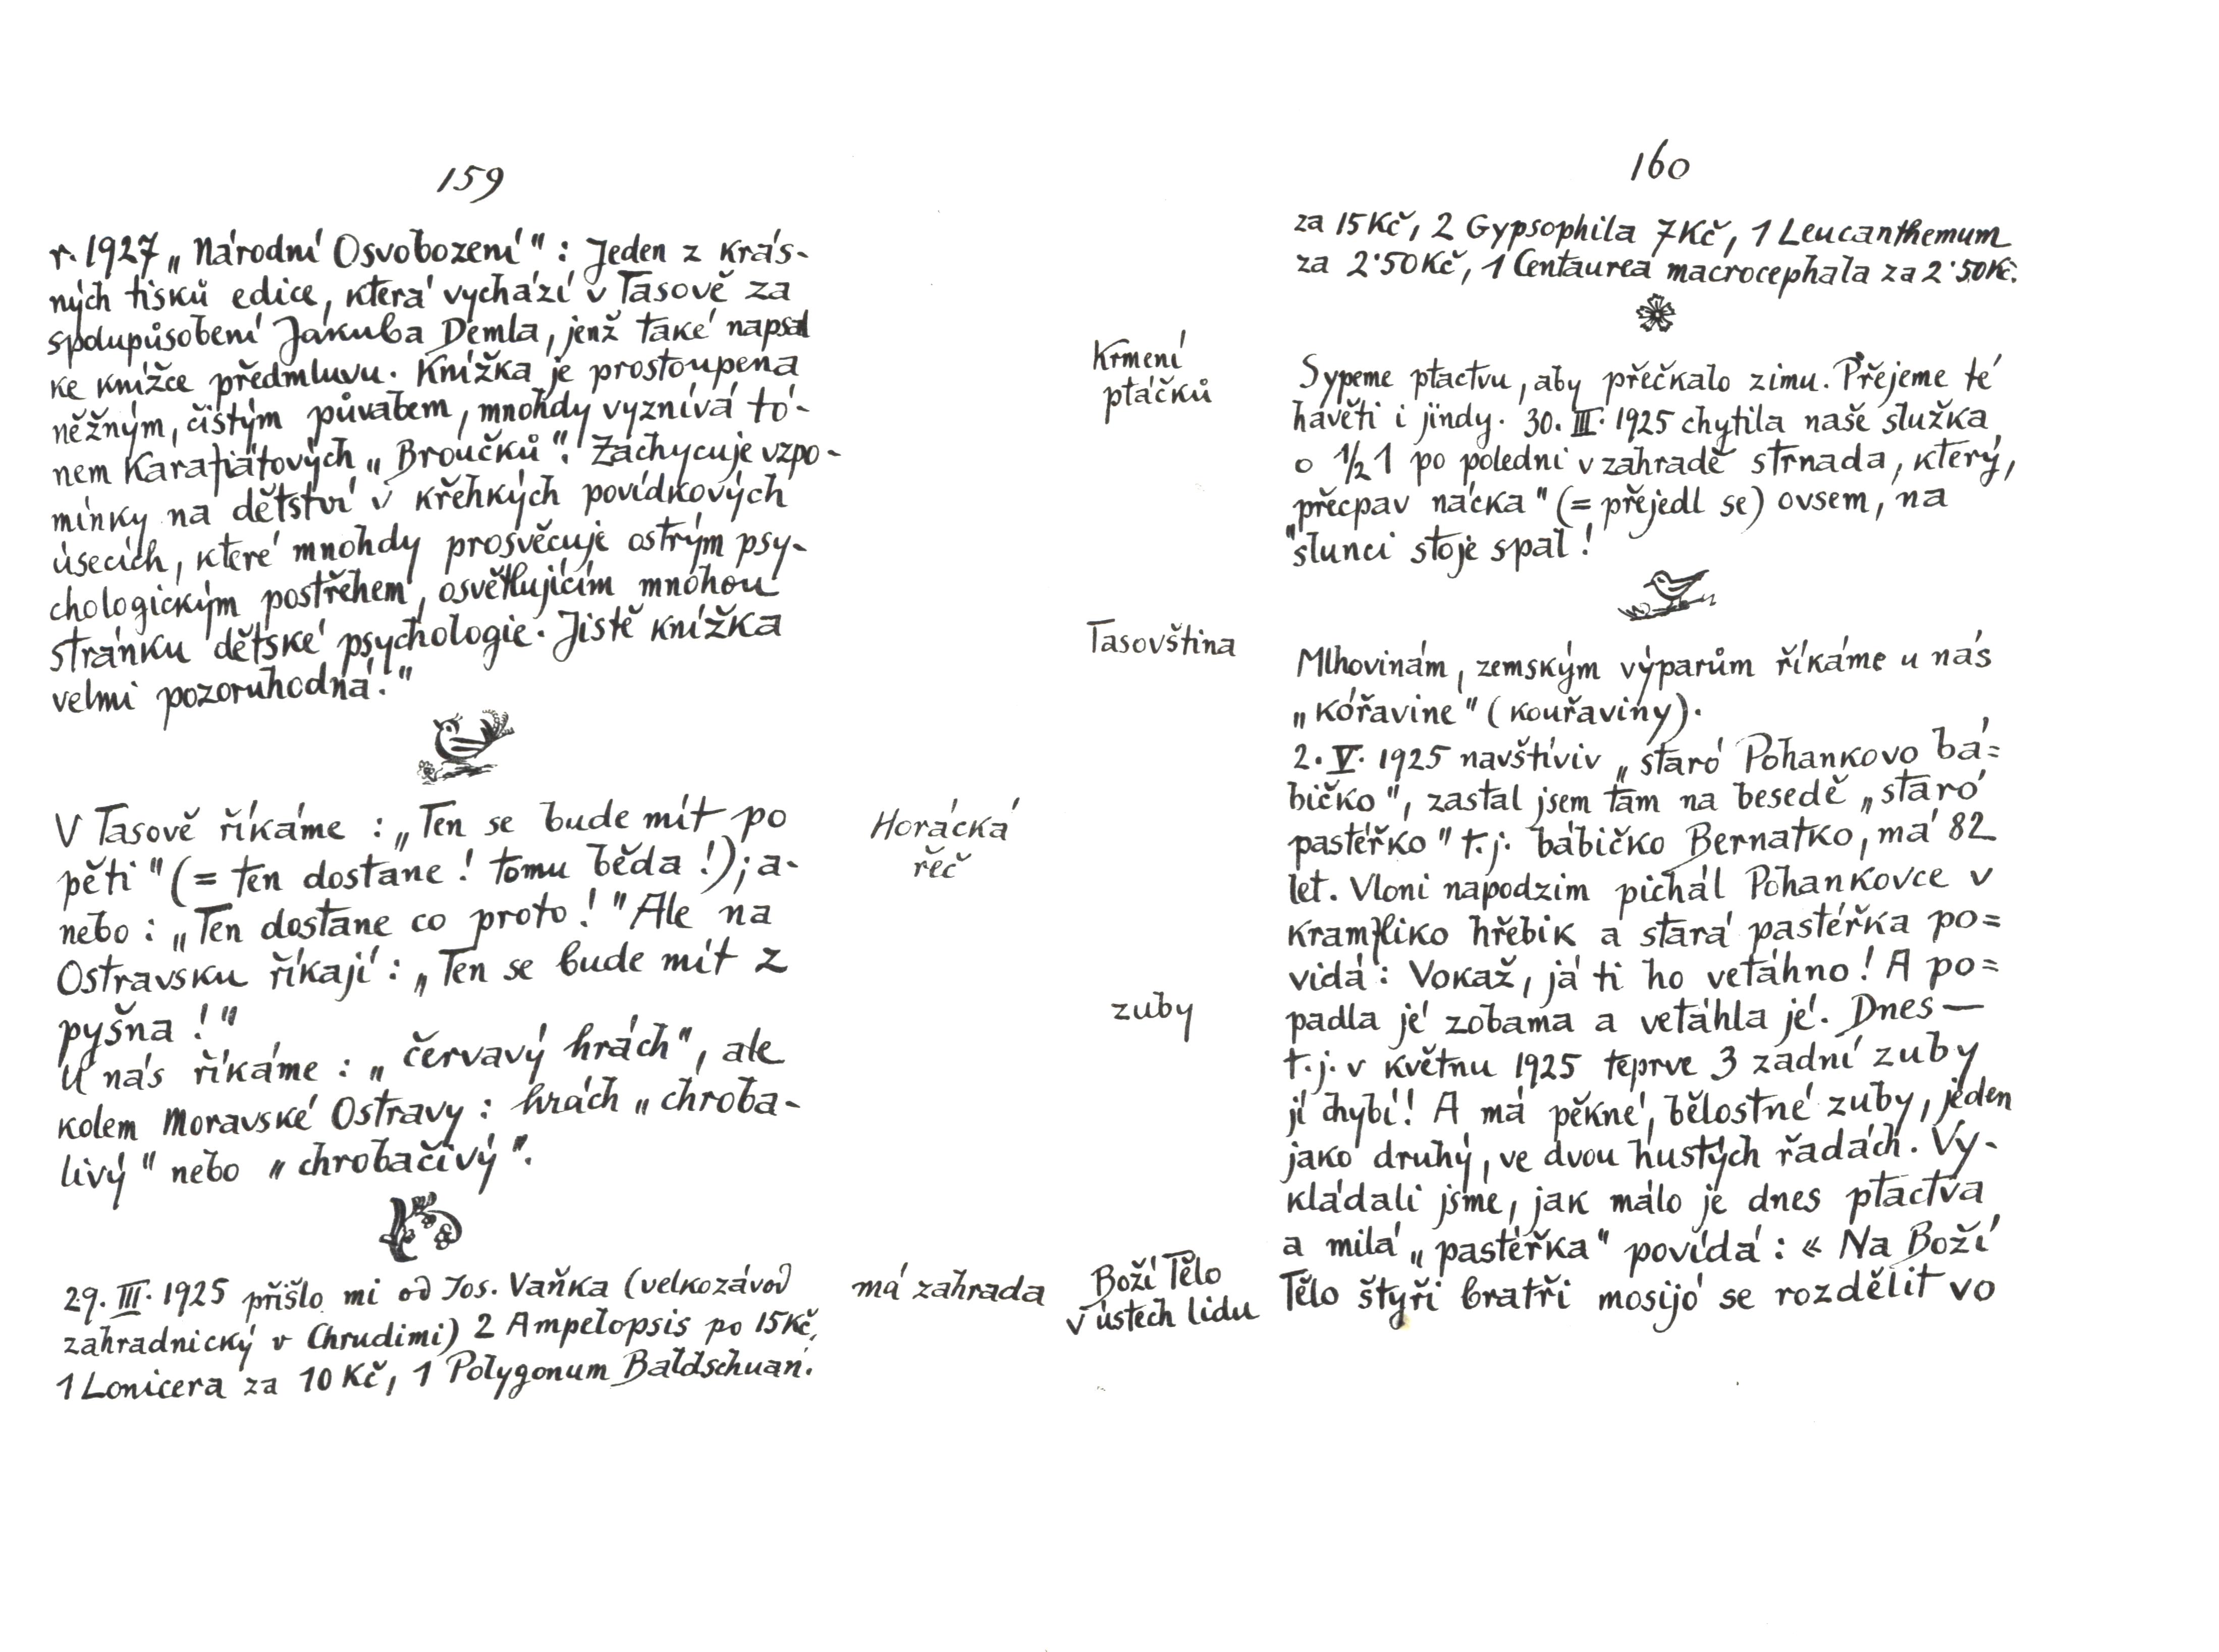 159
r. 1927 „Národní Osvobození": Jeden z krás-
ných tisků edice, která vychází v Tasově za
spolupůsobení Jakuba Demla, jenž také napsal
ke knížce předmluvu. Knížka je prostoupena
něžným, čistým půvabem, mnohdy vyznívá tó-
nem Karafiátových „Broučků". Zachycuje vzpo-
mínky na dětství v křehkých povídkových
úsecích, které mnohdy prosvěcuje ostrým psy-
chologickým postřehem, osvětlujícím mnohou
stránku dětské psychologie. Jistě knížka
velmi pozoruhodná."
V Tasově říkáme : „Ten se bude mít po
pěti" (= ten dostane ! tomu běda !); a-
nebo : „Ten dostane co proto ! " Ale na
Ostravsku říkají : „Ten se bude mít z
pyšna ! "
U nás říkáme : „ červavý hrách", ale
kolem Moravské Ostravy : hrách „chroba-
livý" nebo „chrobačivý".
Horácká
řeč
29. III. 1925 přišlo mi od Jos. Vaňka (velkozávod
zahradnický v Chrudimi) 2 Ampelopsis po 15 Kč,
1 Lonicera za 10 Kč, 1 Polygonum Baldschuan.
má zahrada
160
za 15 Kč, 2 Gypsophila 7 Kč, 1 Leucanthemum
za 2·50 Kč, 1 Centaurea macrocephala za 2·50 Kč.
Krmení
ptáčků
Sypeme ptactvu, aby přečkalo zimu. Přejeme té
havěti i jindy. 30. III. 1925 chytila naše služka
o 1/2 1 po poledni v zahradě strnada, který,
„přecpav nácka" (= přejedl se) ovsem, na
slunci stoje spal !
Tasovština
Mlhovinám, zemským výparům říkáme u nás
„kóřavine" (kouřaviny).
2. V. 1925 navštíviv „staró Pohankovo bá=
bičko", zastal jsem tam na besedě „staró
pastéřko" t.j. bábičko Bernatko, má 82
let. Vloni napodzim pichál Pohankovce v
krampliko hřebik a stará pastéřka po=
vidá : Vokaž, já ti ho vetáhno ! A po=
padla jé zobama a vetáhla jé. Dnes —
t.j. v květnu 1925 teprve 3 zadní zuby
jí chybí ! A má pěkné, bělostné zuby, jeden
jako druhý, ve dvou hustých řadách. Vy-
kládali jsme, jak málo je dnes ptactva
a milá „pastéřka" povídá : « Na Boží
Tělo štyři bratři mosijó se rozdělit vo
zuby
Boží Tělo
v ústech lidu